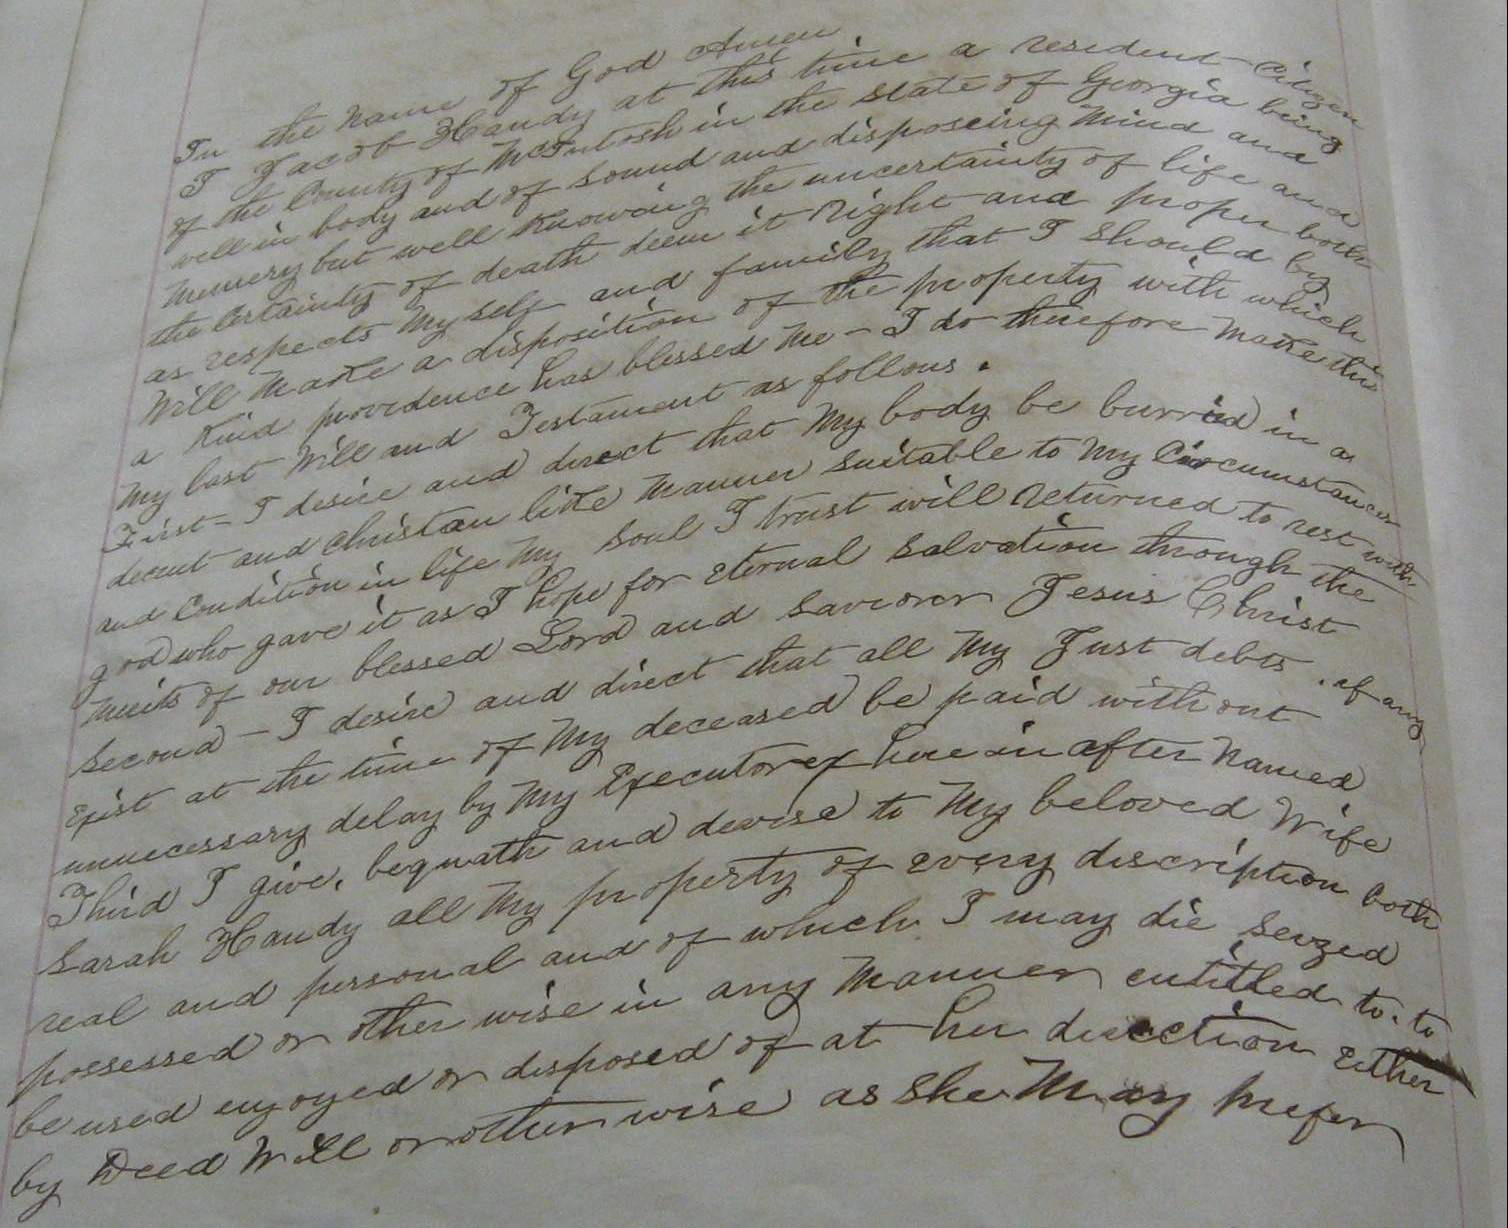 In the name of God Amen.
I Jacob Handy at this time a resident citizen
of the County of McIntosh in the state of Georgia being
well in body and of sound and disposeing Mind and
memery but well Knowing the uncertainty of life and
the Certainty of death deem it right and proper both
as respects My self and family that I should by
Will make a disposition of the property with which
a Kind providence has blessed me - I do therefore make this
My last Will and Testament as follows.
First - I desire and direct that My body be burried in a
decent and christan like manner suitable to My Circumstances
and Condition in life My soul I trust will returned to rest with
god who gave it as I hope for eternal salvation through the
merits of our blessed Lord and saviorer Jesus Christ
Second - I desire and direct that all My Just debts. if any
exist at the time of My deceased be paid without
unnecessary delay by My Executorex here in after Named
Third I give, bequath and devise to My beloved Wife
Sarah Handy all My property of every discription both
real and personal and of which I may die seized
possessed or other wise in any Manner entitled to. to
be used enjoyed or disposed of at her direction either
by Deed Will or other wise as she May prefer